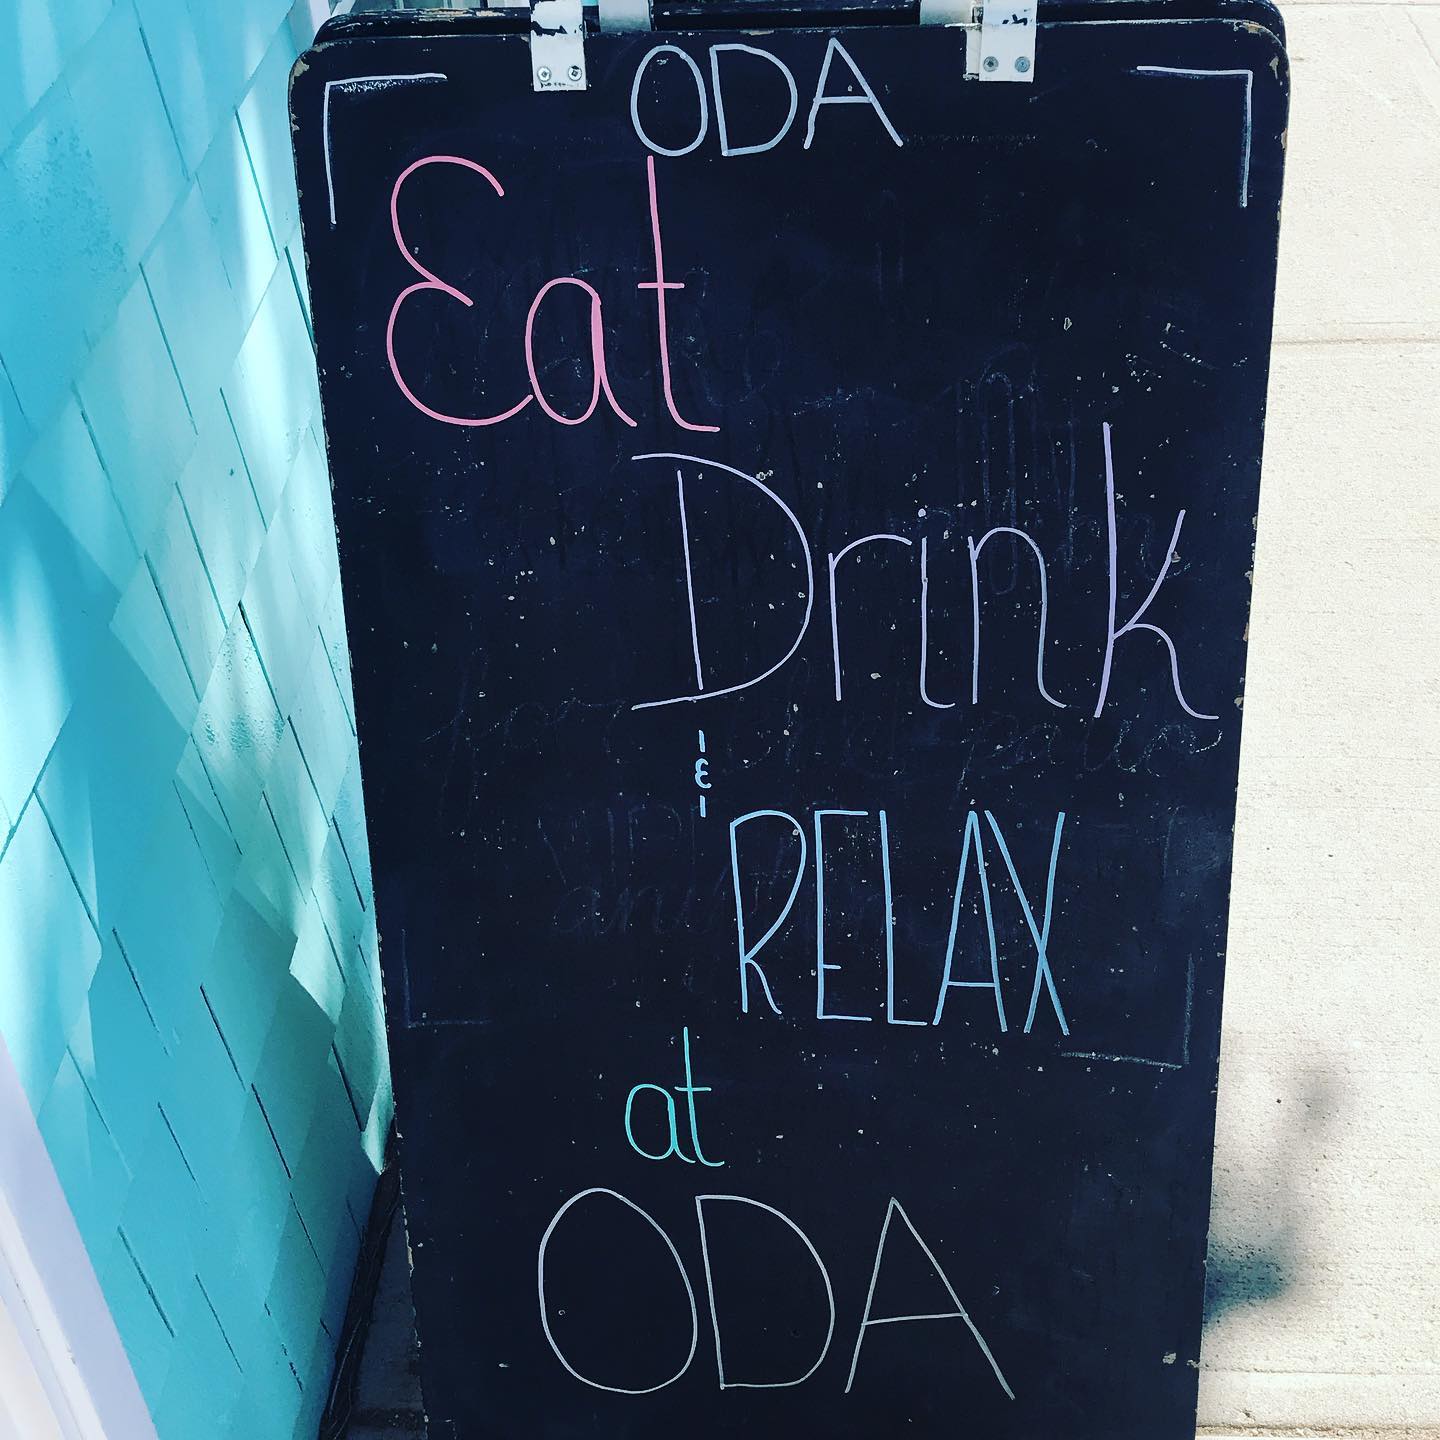 ODA
Eat
Drink
&
RELAX
at
ODA